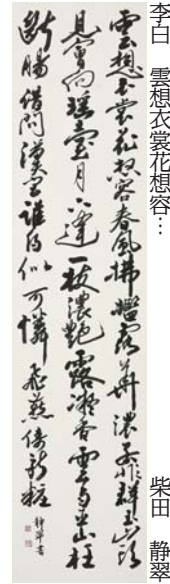 李白　雲想衣裳花想容…
柴田　静翠
雲想衣裳花想容春風拂檻露華濃若非群玉山頭
見會向瑶臺月下逢一枝濃艶露凝香雲雨巫山枉
断腸借問漢宮誰得似可憐飛燕倚新粧
静翠書